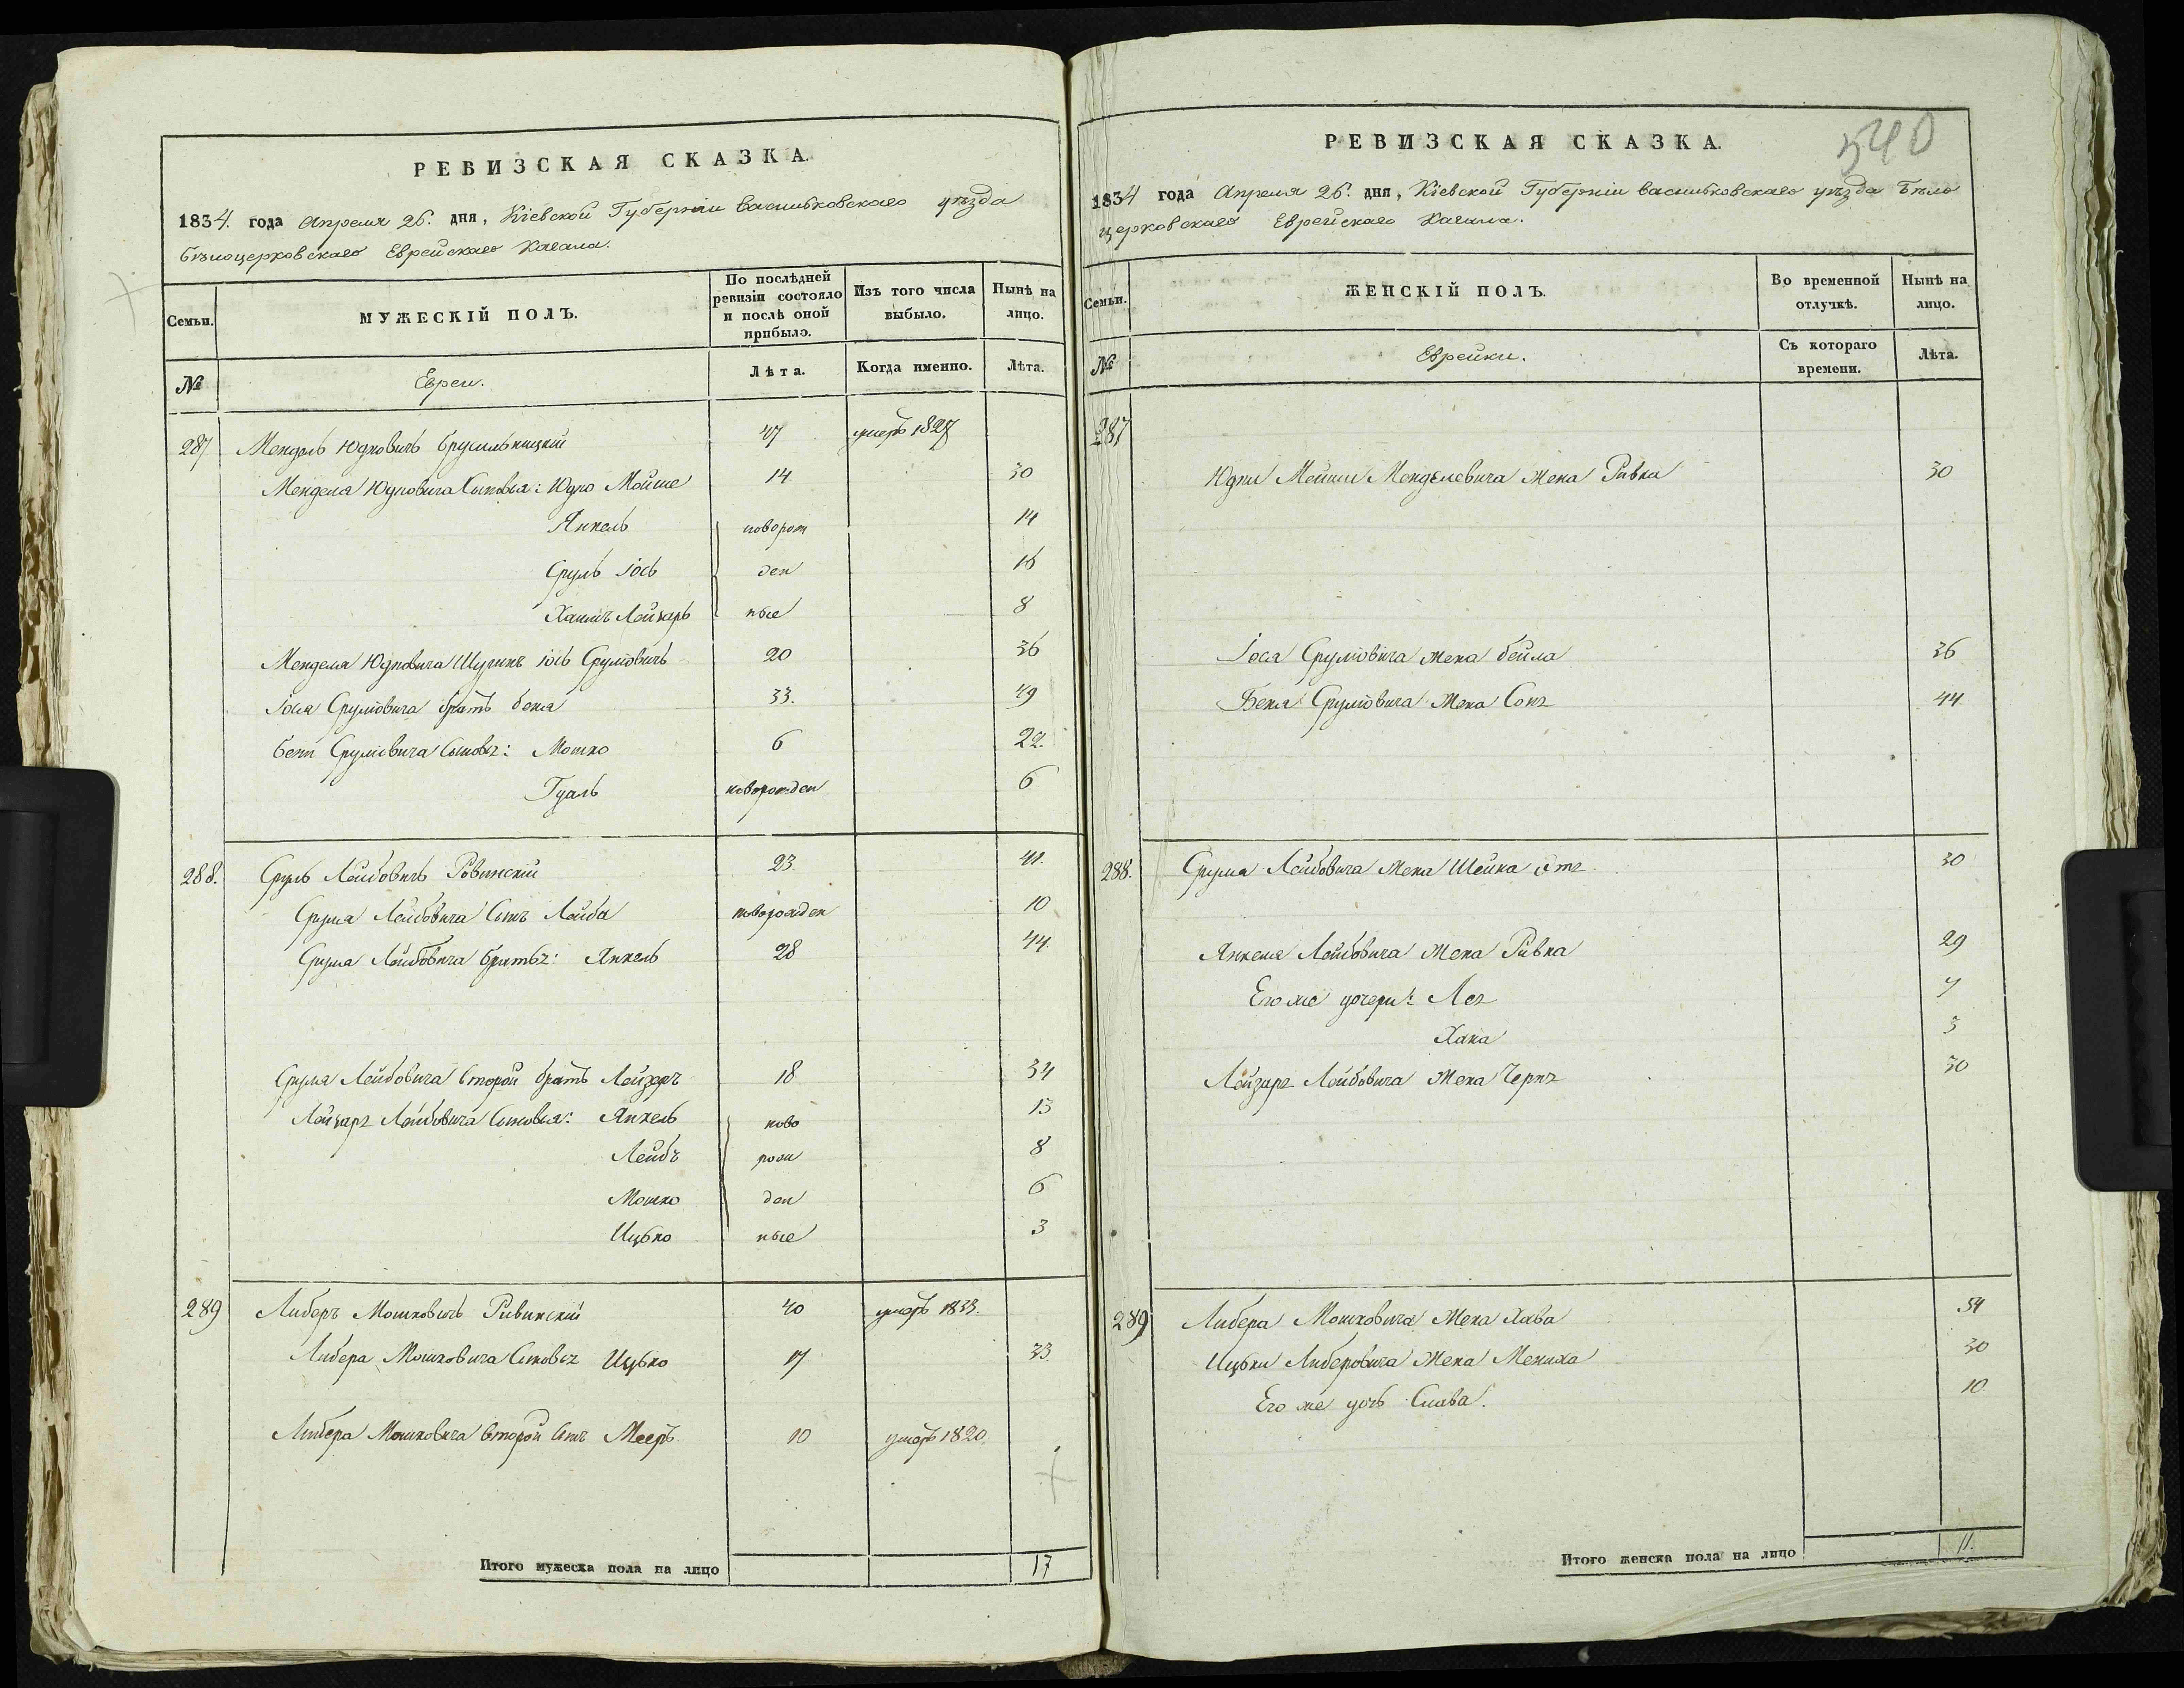 РЕВИЗСКАЯ СКАЗКА.
1834. года Апреля 26. дня, Кіевской Губерніи Васильковскаго уѣзда
Бѣлоцерковскаго Еврейскаго Кагала.
Семьи.
МУЖЕСКІЙ ПОЛЪ.
По послѣдней ревизіи состояло и послѣ оной прибыло.
Изъ того числа выбыло.
Нынѣ на лицо.
№
Евреи.
Лѣта.
Когда именно.
Лѣта.
287 Мендель Юдковичь 47 умеръ 1827
Менделя Юдковича Сыновья: Юдко Мойше 14 30
Янкель новорож 14
Сруль Іось ден 16
Хаимъ Лейзаръ ные 8
Менделя Юдковича Шуринъ Іось Срулiовичь 20 36
Іося Срулiовича братъ Беня 33. 49
Бени Срулiовича Сыновья: Мошко 6 22.
новорожден 6
288. Сруль Лейбовичь Ровинскій 23. 41.
Сруля Лейбовича Сынъ Лейба новорожден 10
Сруля Лейбовича братья: Янкель 28 44.
Сруля Лейбовича Второй братъ Лейзаръ 18 34
Лейзара Лейбовича Сыновья: Янкель ново 13
Лейбъ рож 8
Мошко ден 6
Ицько ные 3
289 Либеръ Мошковичь Ривинскій 40 умеръ 1833.
Либера Мошковича Сыновья Ицько 17 33.
Либера Мошковича Второй Сынъ Мееръ 10 умеръ 1820.
Итого мужеска пола на лицо 17
540
РЕВИЗСКАЯ СКАЗКА.
1834 года Апреля 26. дня, Кіевской Губерніи Васильковскаго уѣзда Бѣло
церковскаго Еврейскаго Кагала.
Семьи.
ЖЕНСКІЙ ПОЛЪ.
Во временной отлучкѣ.
Нынѣ на лицо.
№
Еврейки.
Съ котораго времени.
Лѣта.
287
Юдки Мошки Менделевича жена Ривка 30
Іося Срулiовича жена Бейла 36
Беня Срулiовича жена Соня 44
288. Сруля Лейбовича жена Шейна 30
Янкеля Лейбовича жена Ривка 29
Его же дочери: Лея 7
Хана 3
Лейзара Лейбовича жена Черня 30
289 Либера Мошковича жена Хава 54
Ицьки Либеровича жена Мениха 30
Его же дочь Слава. 10
Итого женска пола на лицо 11.